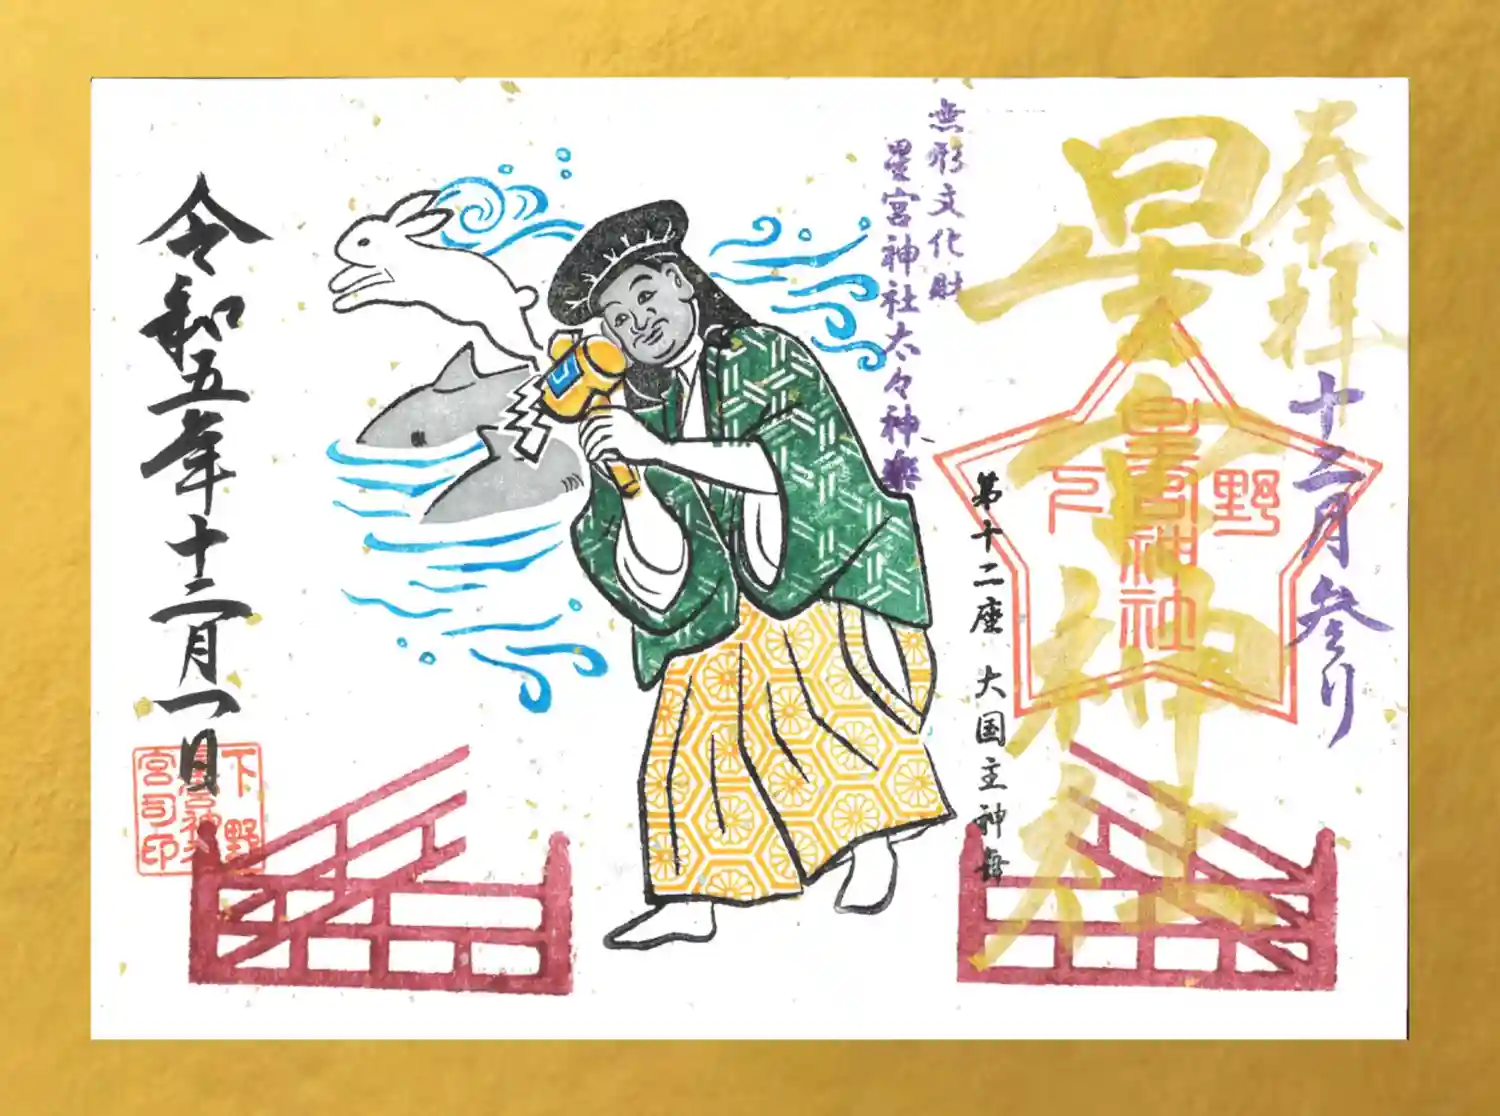 奉拝
十二月参り
星宮神社
下野
星宮神社
無形文化財
星宮神社太々神楽
第十二座 大国主神舞
令和五年十二月一日
下野
星宮神社
宮司印